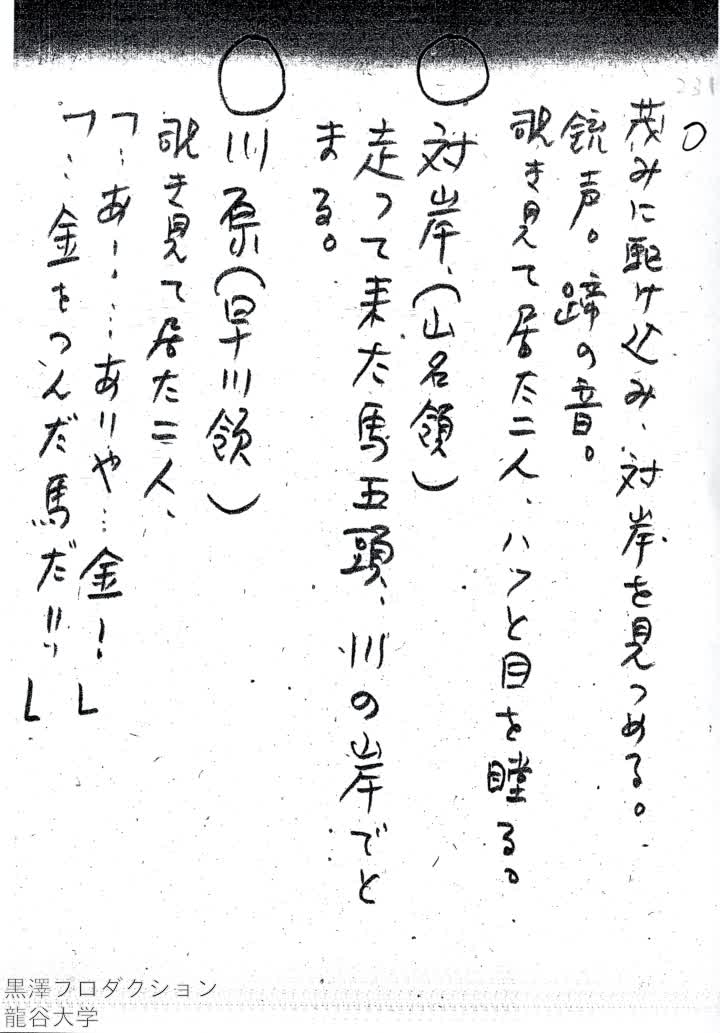 茂みに駈け込み、対岸を見つめる。
銃声。蹄の音。
覗き見て居た二人、ハッと目を瞠る。
対岸、(山名領)
走って来た馬五頭、川の岸でと
まる。
川原(早川領)
覗き見て居た二人、
「…あ!…ありや…金!」
「…金をつんだ馬だ!!」
黒澤プロダクション
龍谷大学